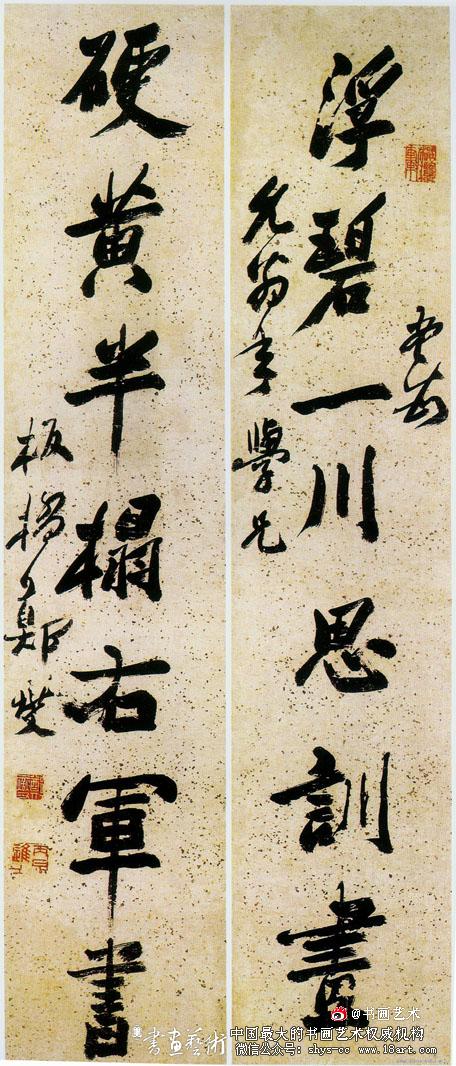 浮碧一川思訓畫
允翁年學兄
硬黄半榻右軍書
板橋鄭燮
丙辰進士
@书画艺术
書画藝術
中国最大的书画艺术权威机构
微信公众号：shys-cc www.18art.com